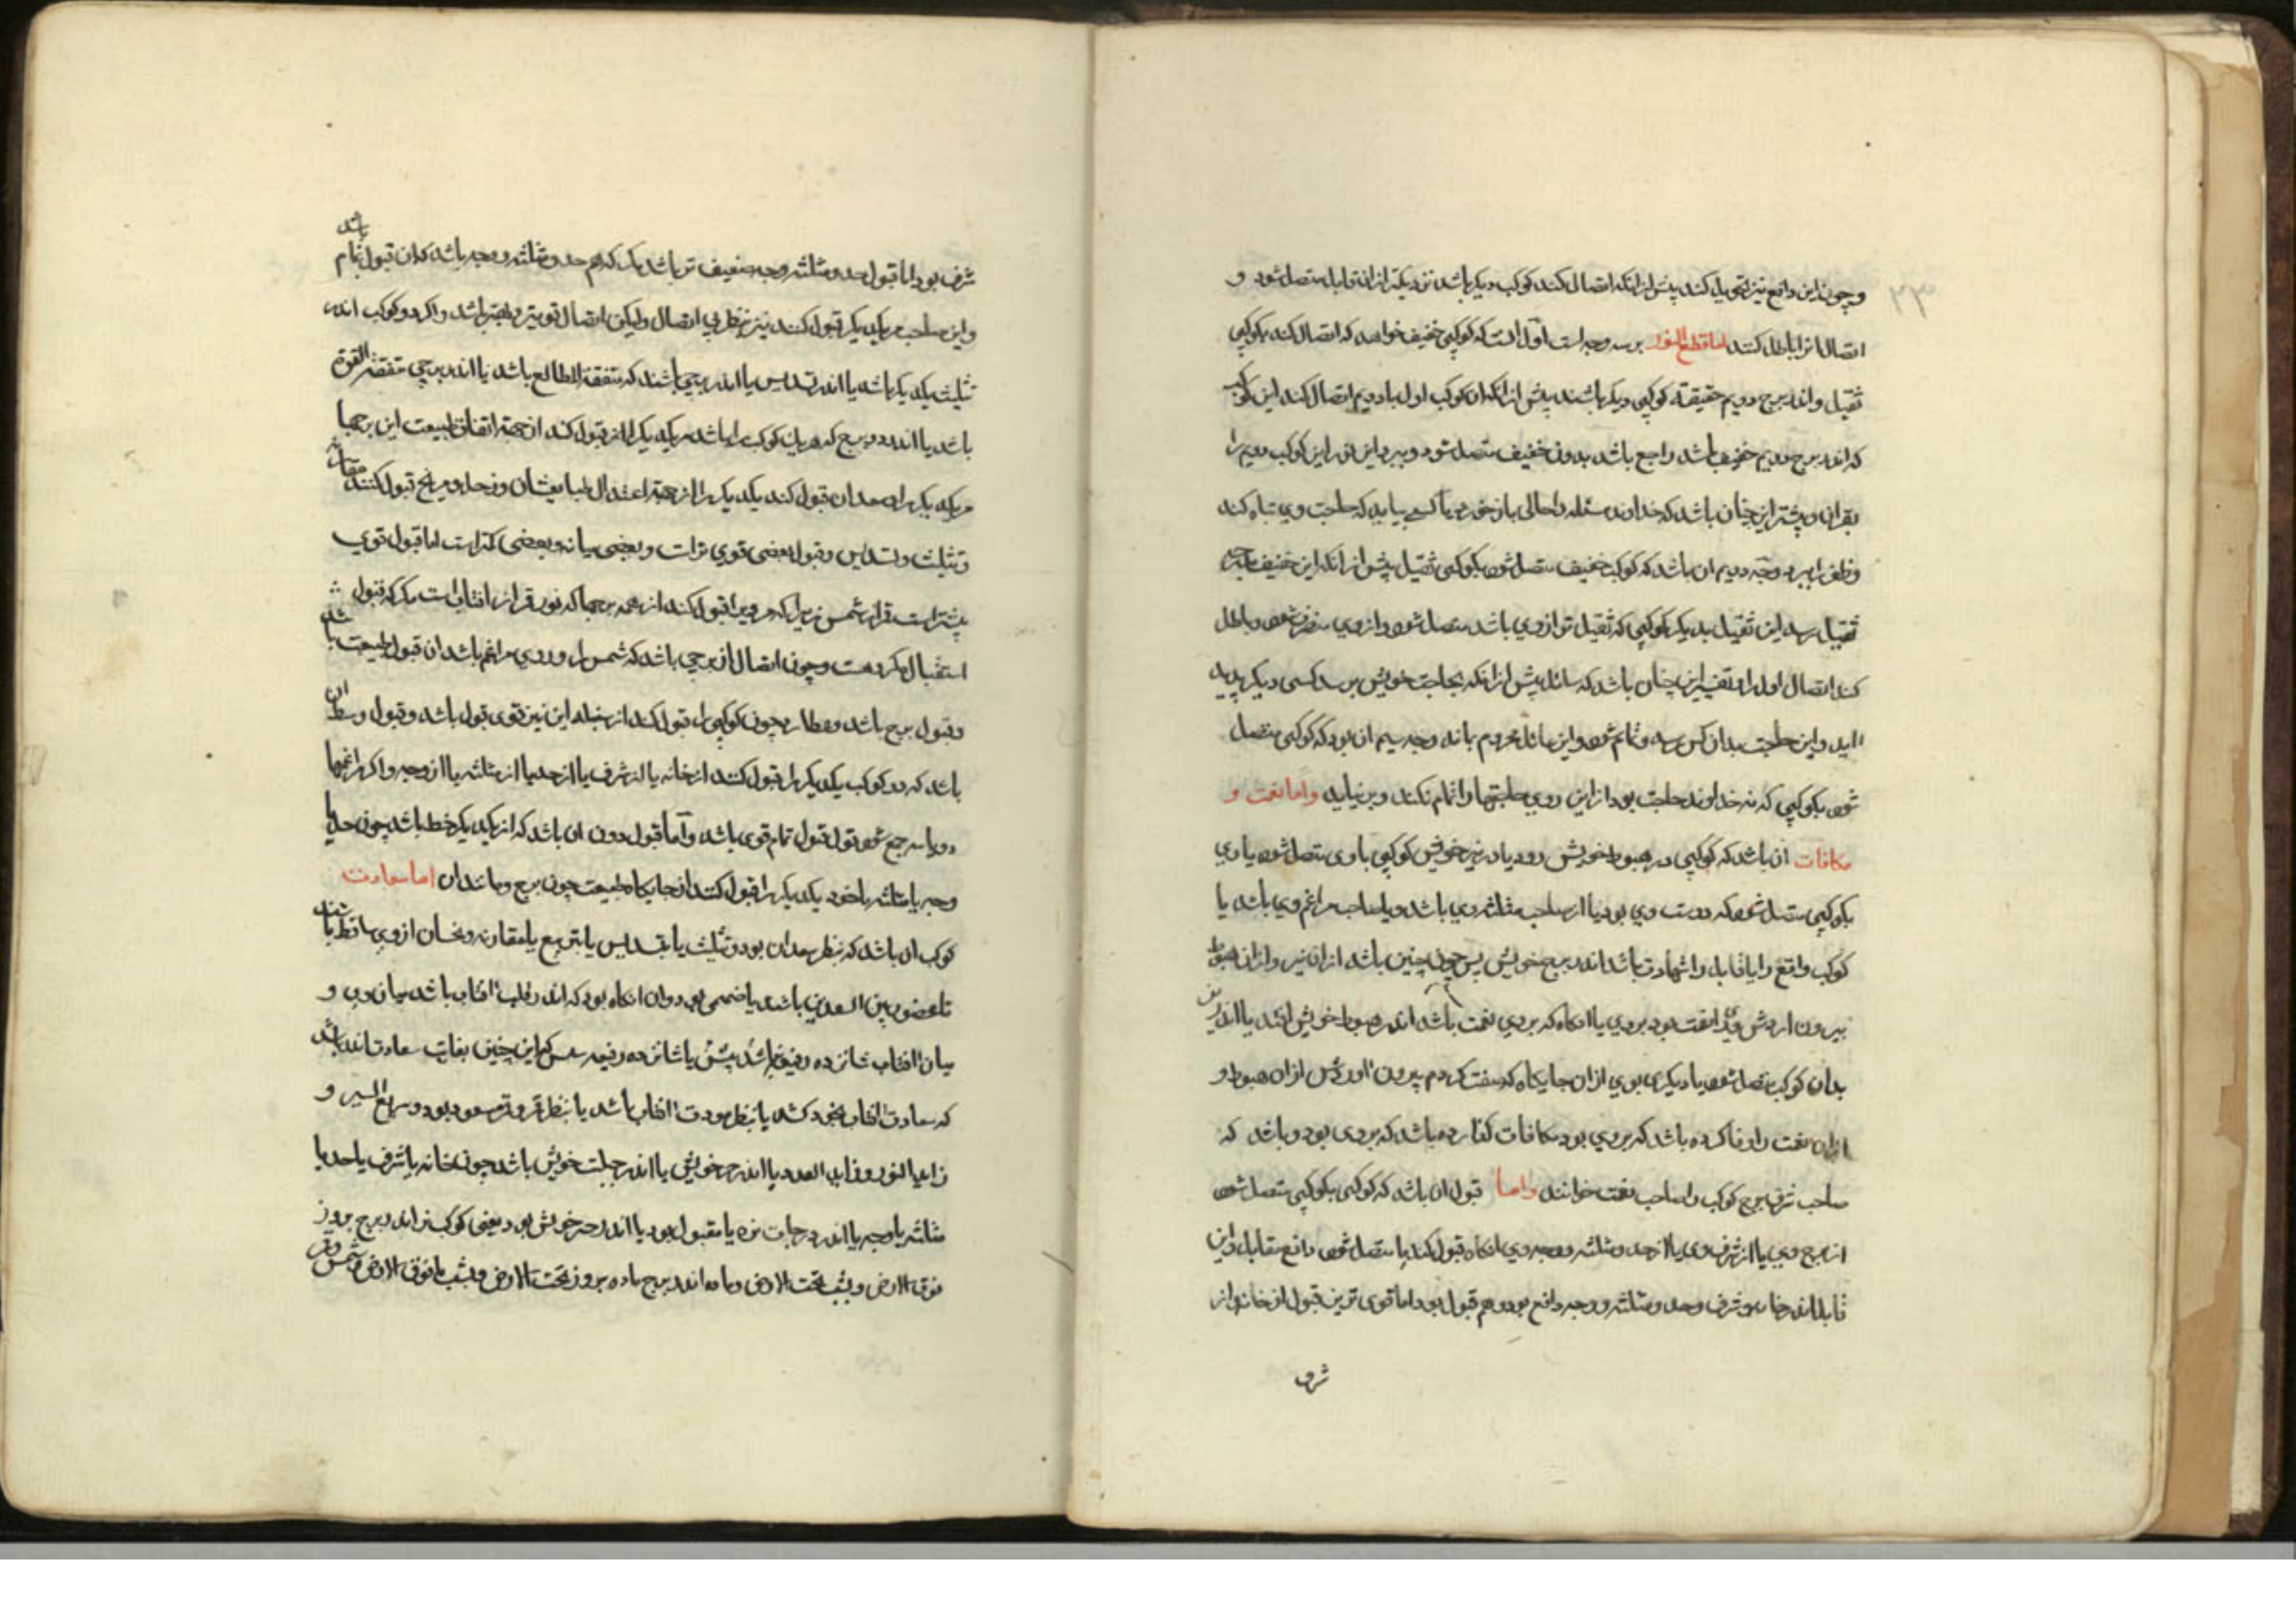 ۲۳
و چون این دافع نیز تحویل کند پیش از انکه اتصال کند کوکب دیکر باشد نزدیکتر از ان قابل متصل شود و
اتصال انرا باطل کنند اما قطع النور بر سه وجه است اول انست که کوکبی خفیف خواهد که اتصال کند بکوکبی
ثقیل و اندر برج دویم حقیقة کوکبی دیکر باشند پیش از انکه ان کوکب اول با دویم اتصال کند این کوکب
که اندر برج دویم خفیف باشد راجع باشد بدون خفیف متصل شود و ببرد این نور این کوکب دویم را
بقران و بیشتر این چنان باشد که خداوند مسئله را حالی باز خورد با کسی بیاید که حاجت وی تباه کند
و ظفر را ببرد وجه دویم ان باشد که کوکب خفیف متصل شود بکوکبی ثقیل پیش از انکه این خفیف
ثقیل رسد این ثقیل بدیکر کوکبی که ثقیل تر از وی باشد متصل شود و از وی منصرف شود و باطل
کند اتصال اول را و تفسیر این چنان باشد که سائل پیش از انکه بحاجت خویش برسد کسی دیکر پدید
اید و این حاجت بدان کس رسد و تمام شود و این سائل محروم ماند وجه سیم ان بود که کوکبی متصل
شود بکوکبی که نه خداوند حاجت بود از این روی حاجتها را تمام نکند و برنیاید و اما نعمت و
مکافات ان باشد که کوکبی در هبوط خویش رود یا در بیر خویش کوکبی با وی متصل شود یا وی
بکوکبی متصل شود که دوست وی بود یا از صاحب مثلثه وی باشد و یا صاحب مزاعم وی باشد یا
کوکب واقع را یا قابل را شهادت باشد اندر برج خویش پس چون چنین باشد از ان بیر و از ان هبوط
بیرون اردش وی را نعمت بود بروی یا انکاه که بروی نعمت باشد اندر هبوط خویش افتد یا اندر
بدان کوکب متصل شود یا دیکری بوی از ان جایکاه که صفت کردم بیرون اوردش از ان هبوط و
از ان نعمت را وفا کرده باشد که بروی بود مکافات کفارده باشد که بروی بود و باشد که
صاحب شرف برج کوکب را صاحب نعمت خوانند و اما قبول ان باشد که کوکبی بکوکبی متصل شود
از برج وی یا از شرف وی یا از حد و مثلثه و وجه وی انکاه قبول کند یا متصل شود دافع مقابل و این
قابل اندر خانه و شرف و حد و مثلثه و وجه دافع بود هم قبول بود اما قوی ترین قبول از خانه و از
شرف
شرف بود اما قبول حد و مثلثه و وجه ضعیف تر باشد مکر که هم حد و مثلثه و وجه باشد که ان قبول تمام باشد
و این صاحب مریکدیکر قبول کنند نیز بنظر بی اتصال ولیکن اتصال قویتر و بهتر باشد و اکر دو کوکب اندر
تثلیث یکدیکر باشد یا اندر تسدیس یا اندر برجی باشند که متفقة المطالع باشد یا اندر برجی متفقة القوة
باشد یا اندر دو برج که هر یک کوکب را باشد مریکدیکر را نیز قبول کند از جهة اتفاق طبیعت این برجها
مریکدیکر را و سعدان قبول کند یکدیکر را از جهة اعتدال طبایعشان و زحل و مریخ قبول کنند مقارنه
و تثلیث و تسدیس و قبول بعضی قوی تر است و بعضی میانه و بعضی کمتر است اما قبول قوی
بیشتر است قمر از شمس زیرا که مر ویرا قبول کند از همه برجها که نور قمر از افتاب است مکر که قبول
استقبال مکروهست و چون اتصال از برجی باشد که شمس را در وی مزاعم باشد ان قبول طبیعت باشد
و قبول برج باشد و عطارد چون کوکبی را قبول کند از سنبله این نیز قوی قبول باشد و قبول وسط ان
باشد که دو کوکب یکدیکر را قبول کنند از خانه یا از شرف یا از حد یا از مثلثه یا از وجه و اکر از اینها
دو یا سه جمع شود قول قبول تمام قوی باشد و اما قبول دون ان باشد که از یکدیکر خط باشد چون حد یا
وجه یا مثلثه یا خود یکدیکر را قبول کنند از جایکاه طبیعت چون برج و مانند ان اما سعادت
کوکب ان باشد که بنظر سعدان بود و تثلیث یا بتسدیس یا بتربیع یا مقارنه و نحسان از وی ساقط باشند
تا محصور بین السعدین باشد یا صمیمی بود و ان انکاه بود که اندر قلب افتاب باشد میان وی و
میان افتاب شانزده دقیقه باشد پیش یا شانزده دقیقه سپس که این چنین بغایت سعادت اندر باشد
که سعادت افتاب بخود کشد یا بنظر مودت افتاب باشد یا بنظر قمر و قمر مسعود بود و سریع السیر و
زاید النور و زاید العدد یا اندر حیز خویش یا اندر جلبت خویش باشد چون خانه یا شرف یا حد یا
مثلثه یا وجه یا اندر درجات نره یا مقبول بود یا اندر حیز خویش بود یعنی کوکب نر اندر برج بروز
فوق الارض و بشب تحت الارض و ماده اندر برج ماده بروز تحت الارض و بشب فوق الارض و شمس